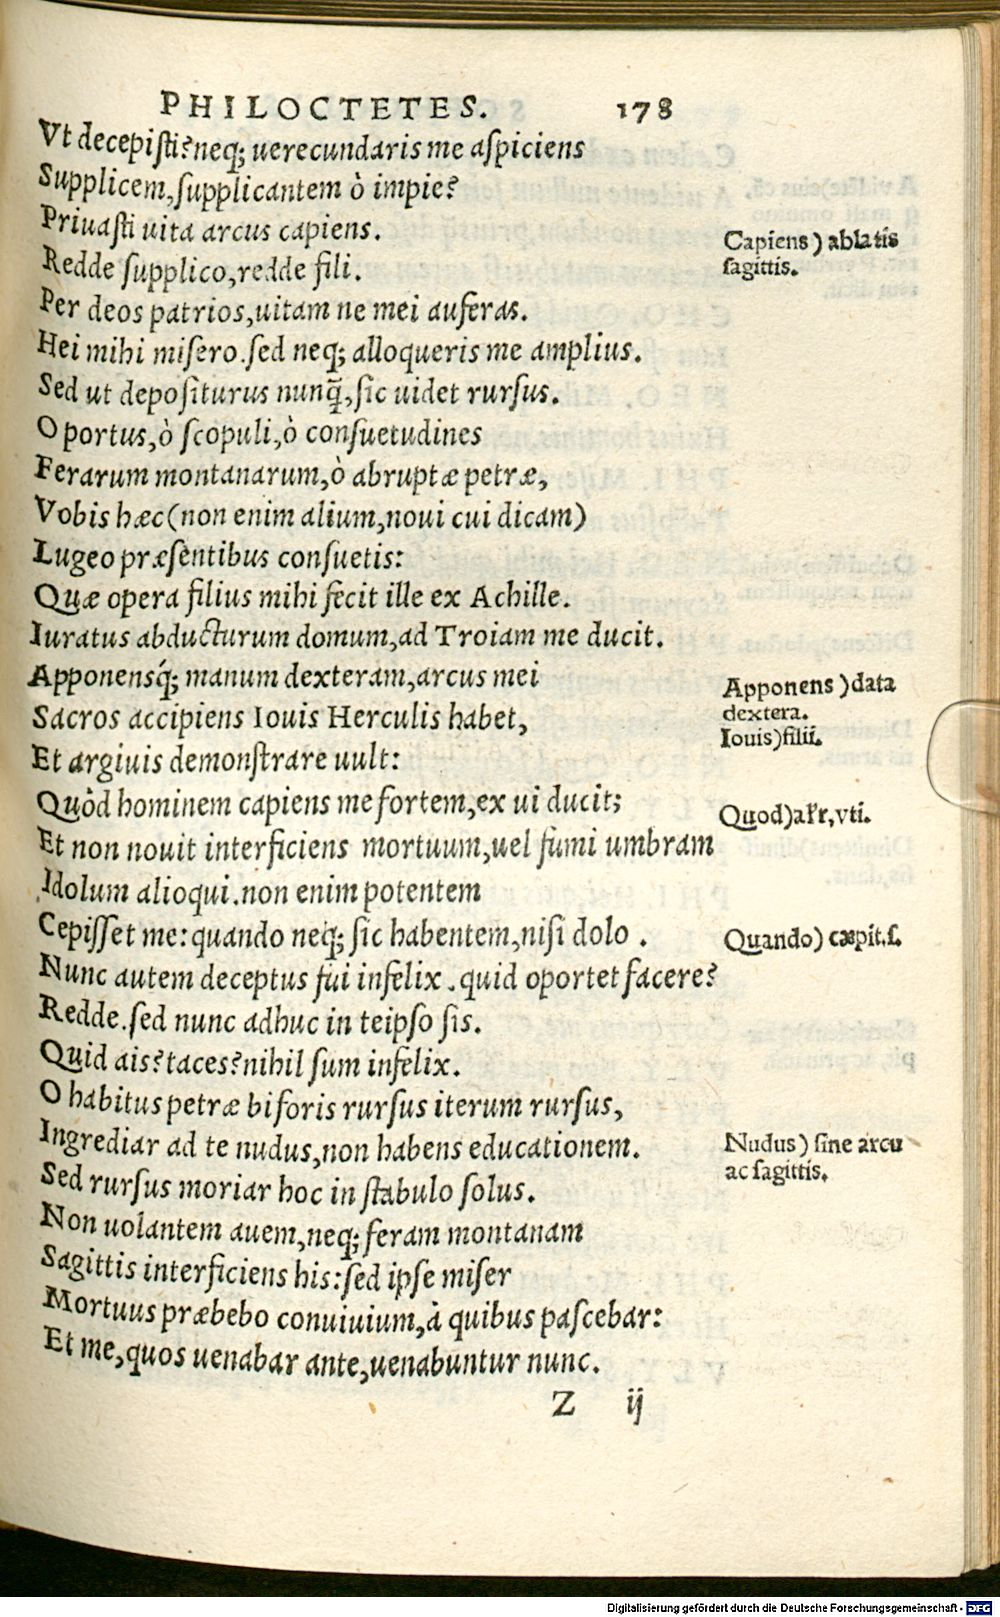 PHILOCTETES. 178
Vt decepisti? neq; uerecundaris me aspiciens
Supplicem, supplicantem ò impie?
Priuasti uita arcus capiens.
Capiens) ablatis
sagittis.
Redde supplico, redde fili.
Per deos patrios, uitam ne mei auferas.
Hei mihi misero. sed neq; alloqueris me amplius.
Sed ut depositurus nunq̃, sic uidet rursus.
O portus, ò scopuli, ò consuetudines
Ferarum montanarum, ò abruptæ petræ,
Vobis hæc (non enim alium, noui cui dicam)
Lugeo præsentibus consuetis:
Quæ opera filius mihi fecit ille ex Achille.
Iuratus abducturum domum, ad Troiam me ducit.
Apponensq́; manum dexteram, arcus mei
Apponens) data
dextera.
Sacros accipiens Iouis Herculis habet,
Iouis) filii.
Et argiuis demonstrare uult:
Quòd hominem capiens me fortem, ex ui ducit;
Quod) al'r, vti.
Et non nouit interficiens mortuum, uel fumi umbram
Idolum alioqui. non enim potentem
Cepisset me: quando neq; sic habentem, nisi dolo.
Quando) cæpit. s.
Nunc autem deceptus fui infelix. quid oportet facere?
Redde. sed nunc adhuc in teipso sis.
Quid ais? taces? nihil sum infelix.
O habitus petræ biforis rursus iterum rursus,
Ingrediar ad te nudus, non habens educationem.
Nudus) sine arcu
ac sagittis.
Sed rursus moriar hoc in stabulo solus.
Non uolantem auem, neq; feram montanam
Sagittis interficiens his: sed ipse miser
Mortuus præbebo conuiuium, à quibus pascebar:
Et me, quos uenabar ante, uenabuntur nunc.
Z ij
Digitalisierung gefördert durch die Deutsche Forschungsgemeinschaft - DFG